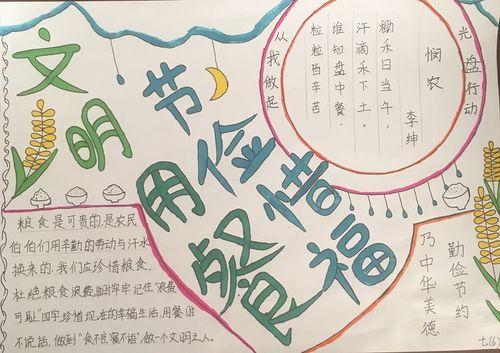 文明
用餐
节俭惜福
光盘行动
从我做起
悯农
李绅
锄禾日当午,
汗滴禾下土。
谁知盘中餐,
粒粒皆辛苦
粮食是可贵的是农民
伯伯们用辛勤的劳动与汗水
换来的,我们应珍惜粮食,
杜绝粮食浪费,牢牢记住“浪费
可耻”四字,珍惜现在的幸福生活,用餐时
不说话,做到“食不言,寝不语”做一个文明之人。
勤俭节约
乃中华美德